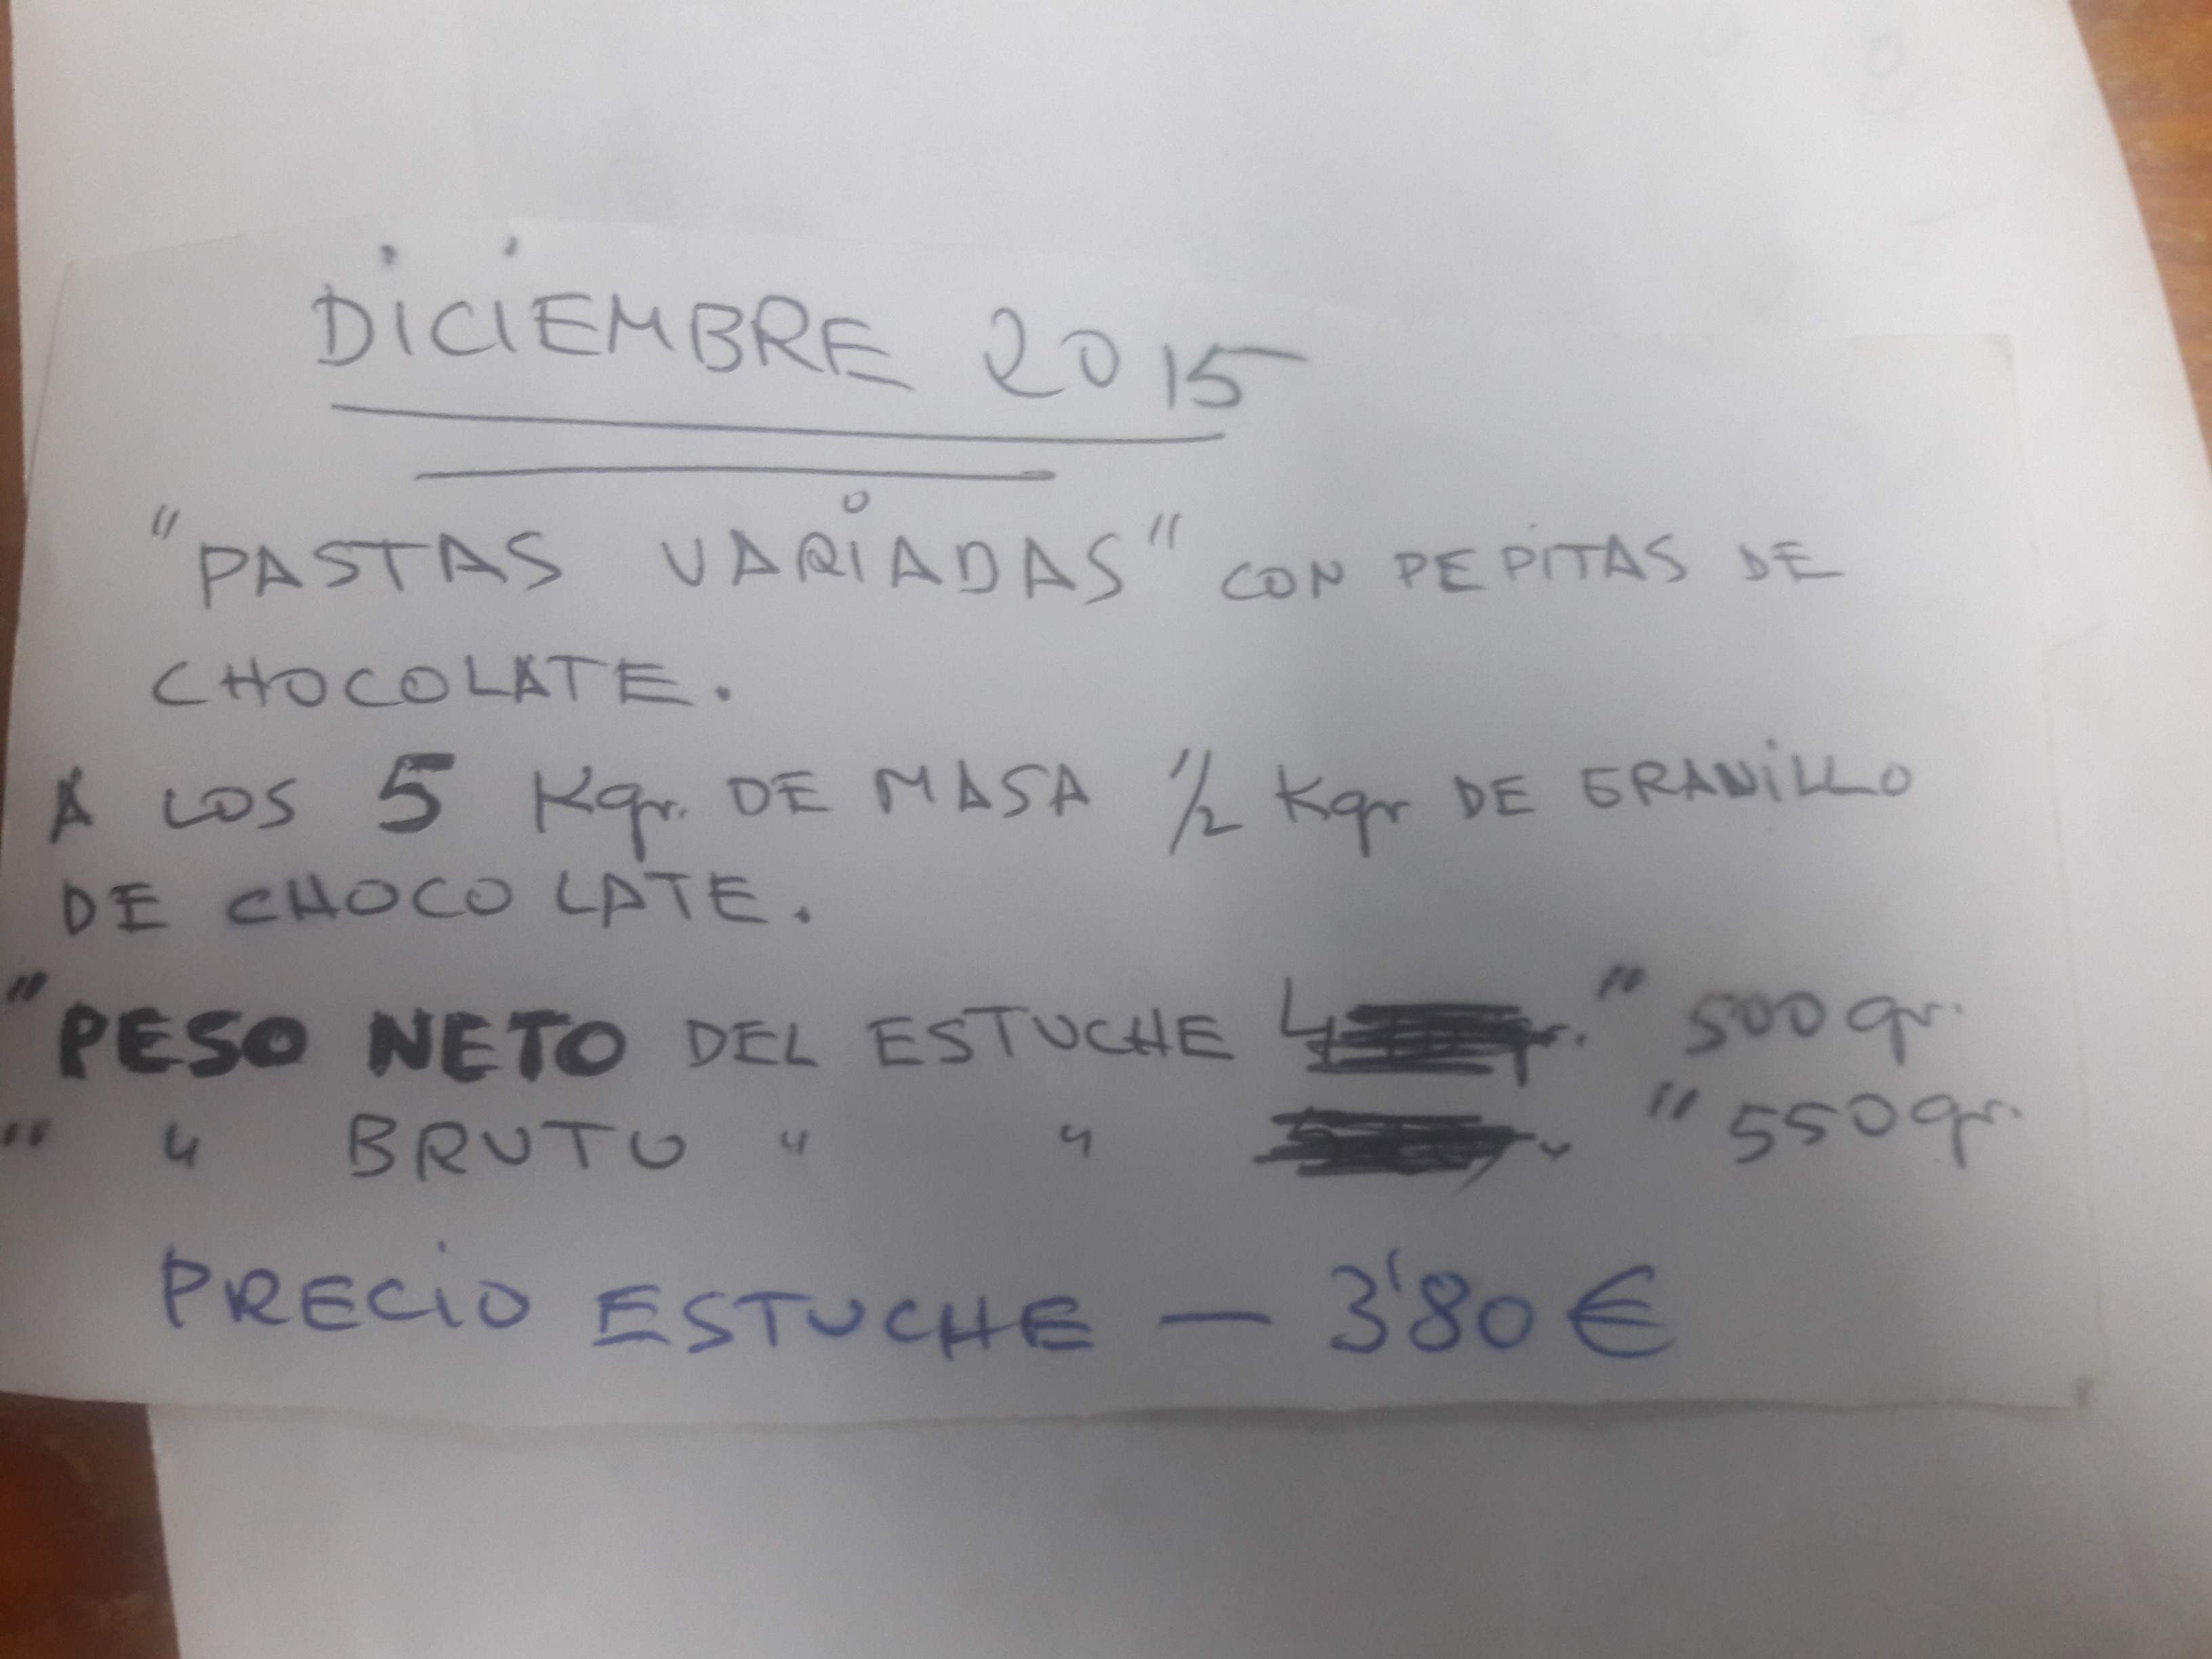 DICIEMBRE 2015
"PASTAS VARIADAS" CON PEPITAS DE
CHOCOLATE.
A LOS 5 Kgr. DE MASA 1/2 Kgr DE GRANILLO
DE CHOCOLATE.
"PESO NETO DEL ESTUCHE " 500 gr.
" " BRUTO " " " 550 gr.
PRECIO ESTUCHE — 3'80 €